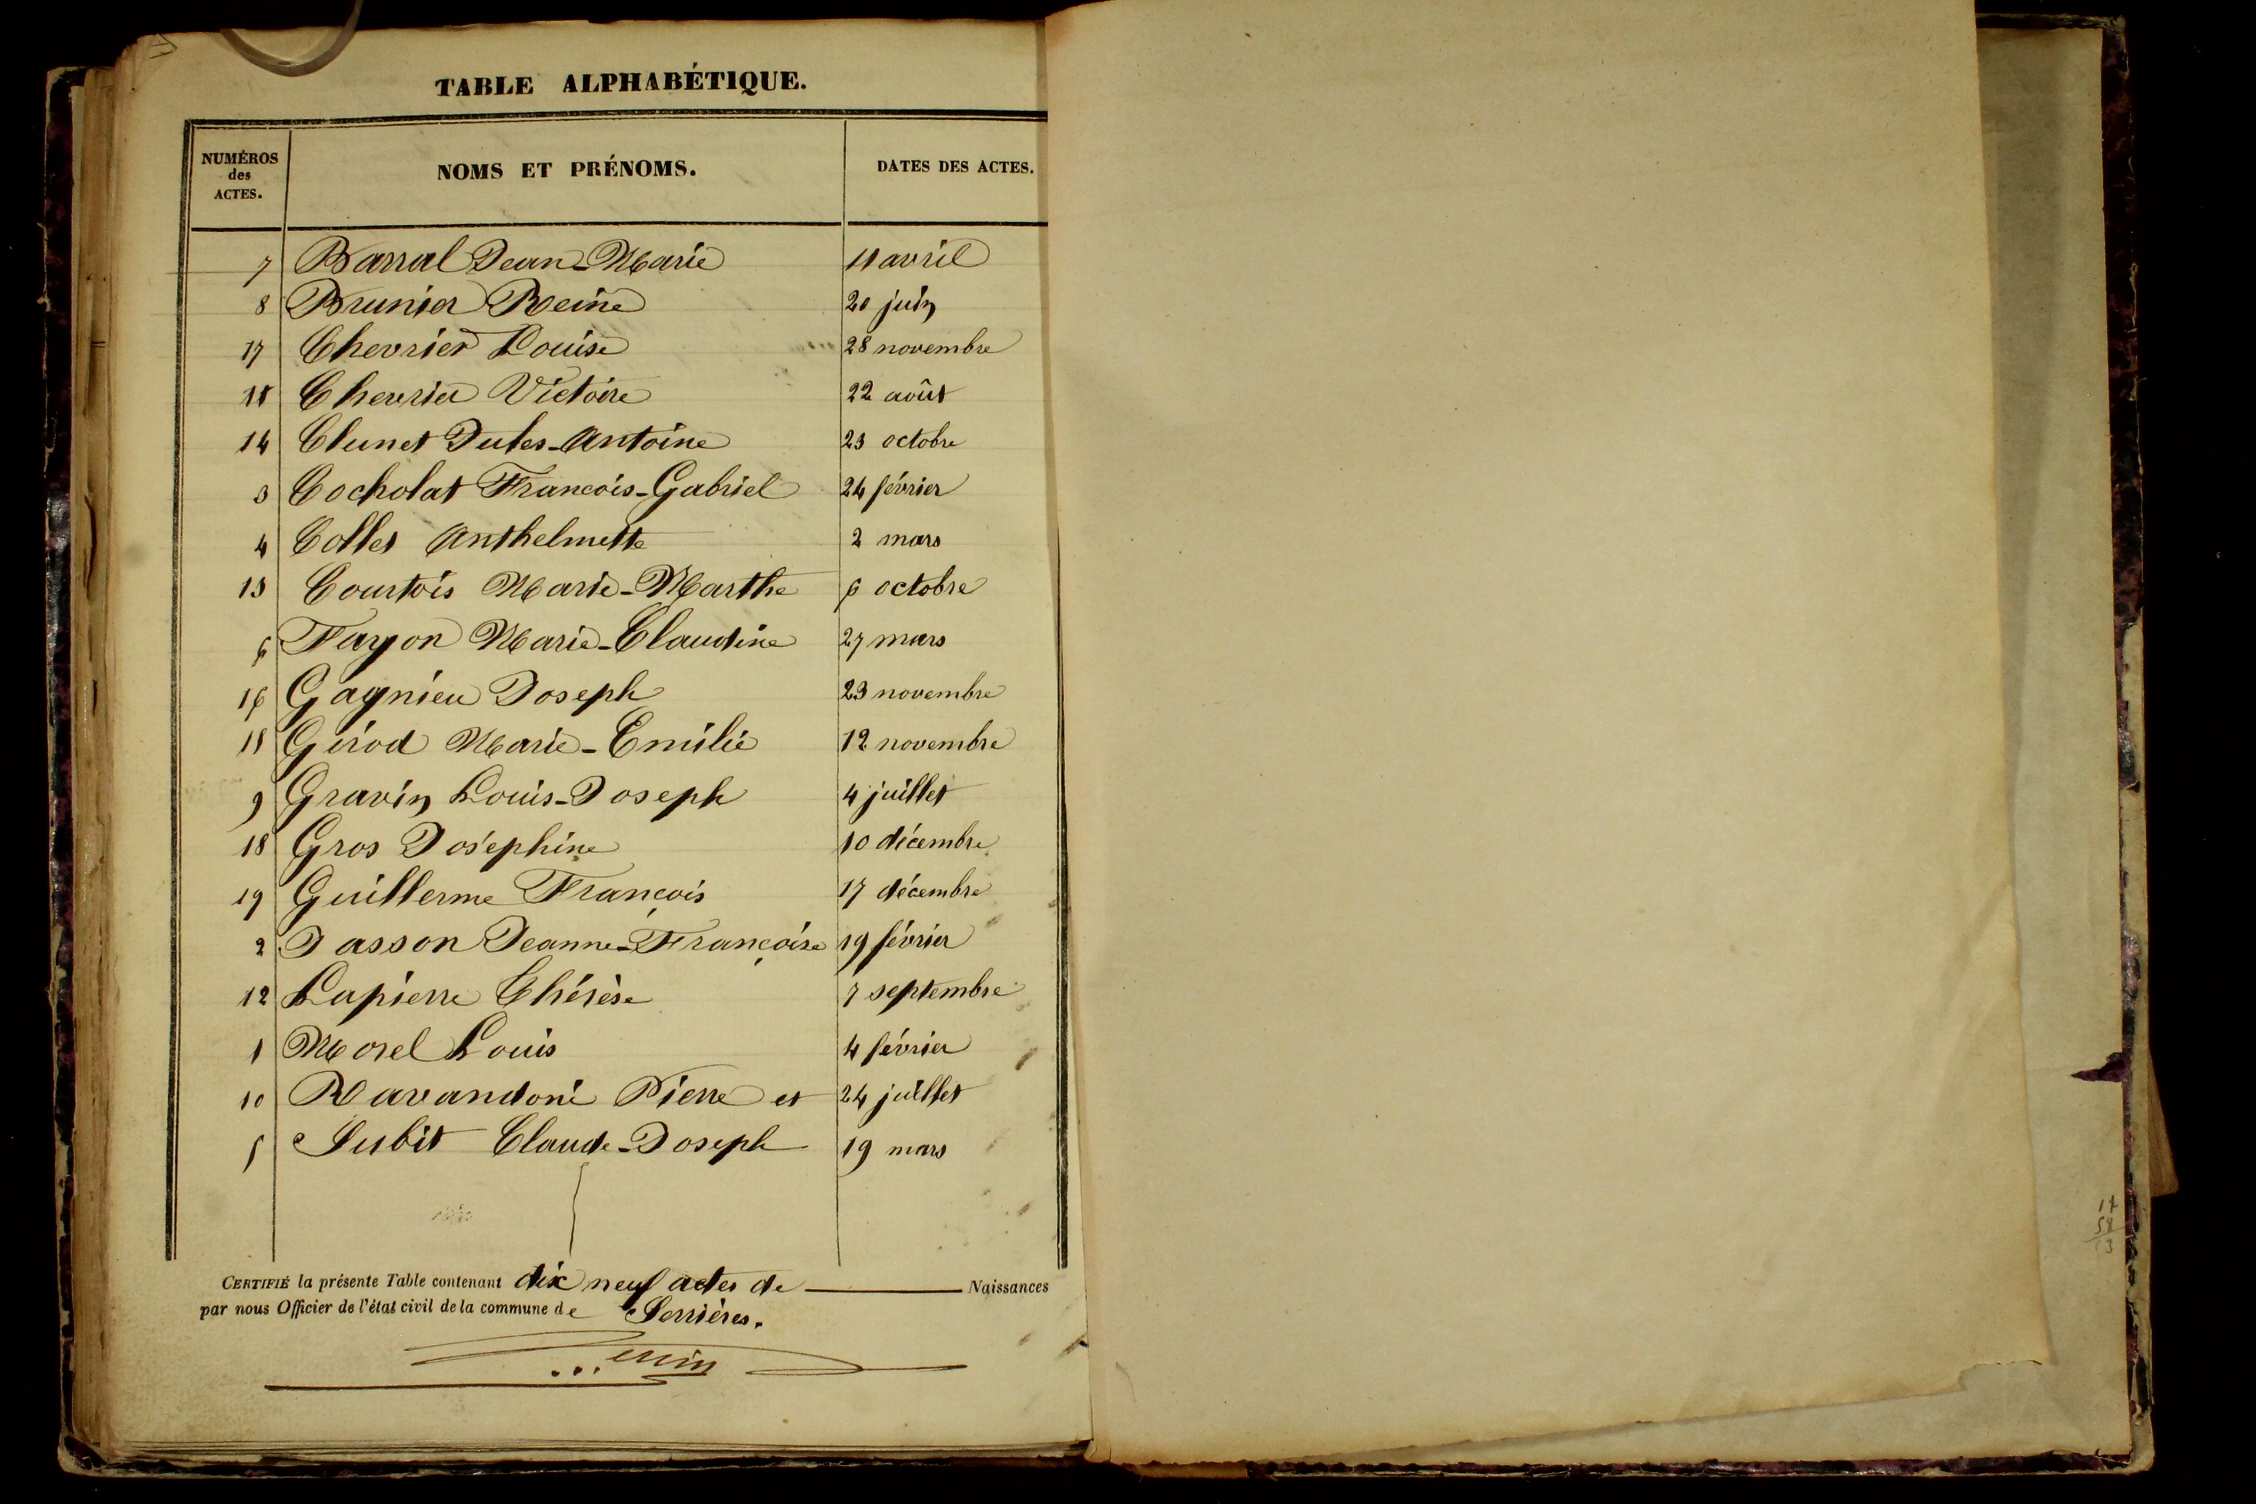 TABLE ALPHABÉTIQUE.
NUMÉROS des ACTES. NOMS ET PRÉNOMS. DATES DES ACTES.
7 Barral Jean-Marie 11 avril
8 Brunier Reine 20 juin
17 Chevrier Louise 28 novembre
11 Chevrier Victoire 22 août
14 Clunet Jules-Antoine 23 octobre
3 Cocholat Francois-Gabriel 24 février
4 Collet Anthelmette 2 mars
13 Courtois Marie-Marthe 6 octobre
6 Fayon Marie-Claudine 27 mars
16 Gagnieu Joseph 23 novembre
15 Girod Marie-Emilie 12 novembre
9 Gravin Louis-Joseph 4 juillet
18 Gros Joséphine 10 décembre
19 Guillerme François 17 décembre
2 Jasson Jeanne-Françoise 19 février
12 Lapierre Thérèse 7 septembre
1 Morel Louis 4 février
10 Ravandoni Pierre et 24 juillet
5 Subit Claude-Joseph 19 mars
CERTIFIÉ la présente Table contenant dix neuf actes de Naissances
par nous Officier de l'état civil de la commune de Serrières.